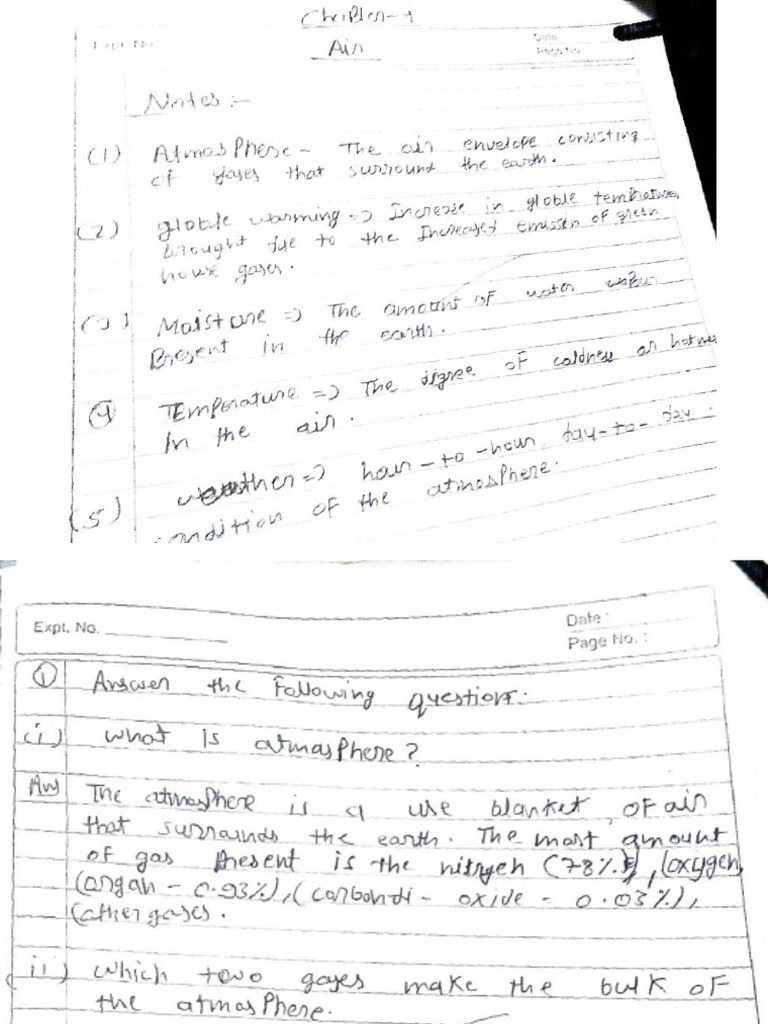 Chapter-4
Expt. No.
Air
Date
Page No.
Notes :-
(1) Atmosphere - The air envelope consisting
of gases that surround the earth.
(2) globle warming => Increase in globle temprature,
brought due to the Increased Emission of green
house gases.
(3) Moisture => The amount of water vapour
Present in the earth.
(4) TEmperature => The digree of coldness or hotness
In the air.
(5) weather => hour-to-hour, day-to-day
condition of the atmosphere.
Expt. No.
Date :
Page No. :
(1) Answer the following questions:
(i) what is atmosphere?
Ans The atmosphere is a use blanket of air
that surrounds the earth. The most amount
of gas present is the nitrgen (78%), (oxygen,
(argan - 0.93%), (carbondi- oxide - 0.03%),
(other gases.
(ii) which two gases make the bulk of
the atmosphere.